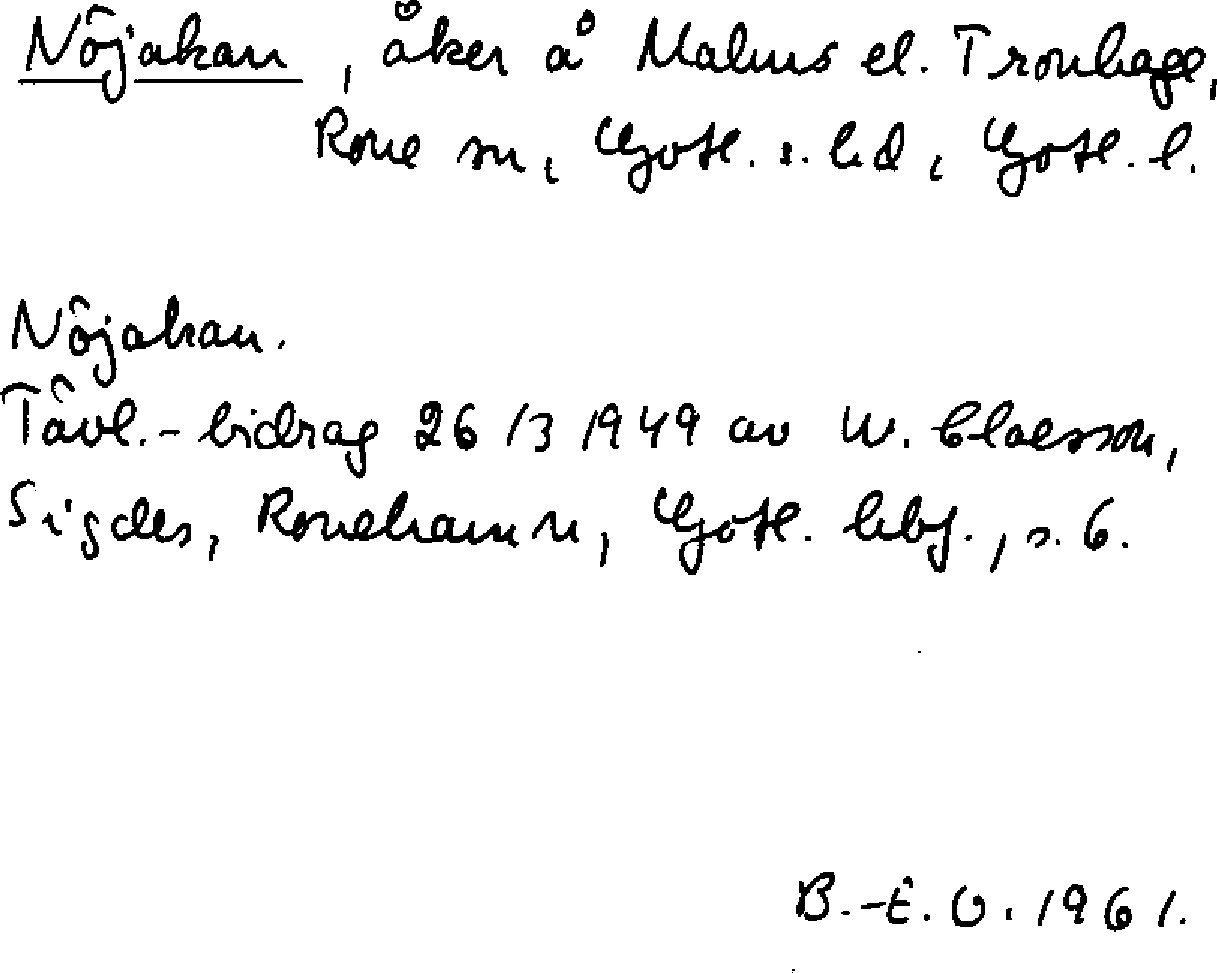 Nöjakan, åker å Malms el. Tronhage,
Rone sn, Gotl. s. hd, Gotl. l.
Nöjakan.
Tävl.-bidrag 26/3 1949 av W. Claesson,
Sigdes, Ronehamn, Gotl. hbf., s. 6.
B.-E. O. 1961.